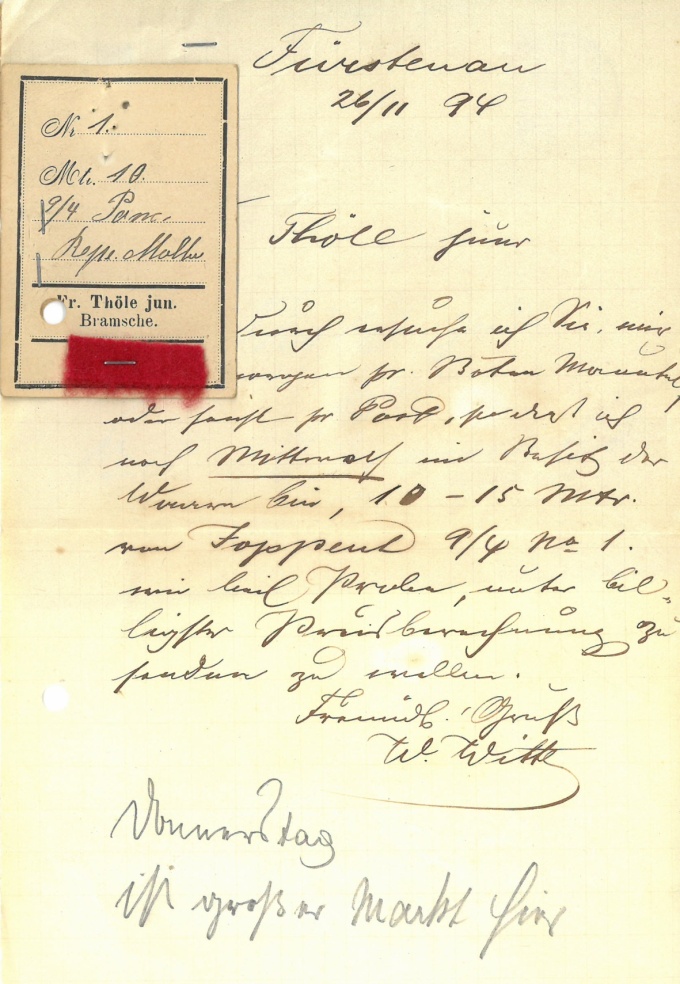 Fürstenau
26/11 94
Nr 1.
Mtr. 10.
9/4
Fr. Thöle jun.
Bramsche.
Thöle junr
durch ersuche ich Sie, mir
morgen pr. Boten
oder sonst pr Post, so daß ich
noch Mittwoch im Besitz der
Waaren bin, 10 – 15 Mtr.
von 9/4 No 1.
wie beil Probe, unter bil-
ligster Preisberechnung zu
senden zu wollen.
Freundl. Gruß
W. Witte
Donnerstag
ist großer Markt hier